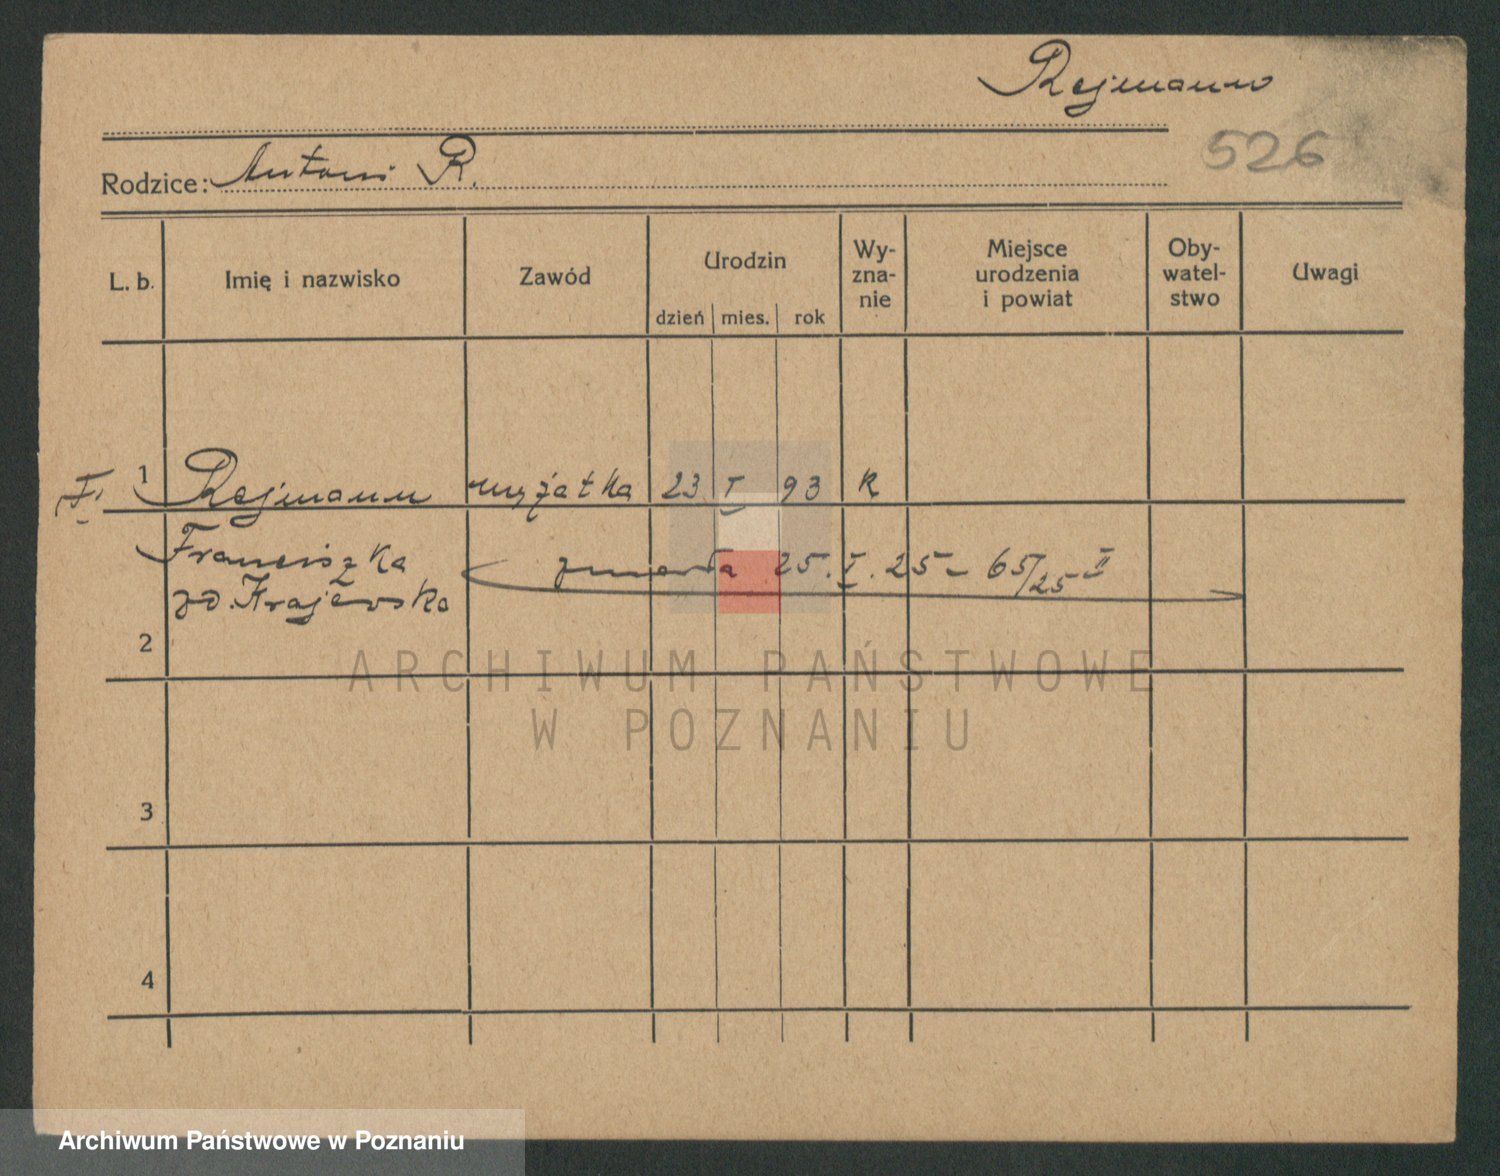 Rejmann
526
Rodzice: Antoni R.
L. b. Imię i nazwisko Zawód Urodzin dzień mies. rok Wy-zna-nie Miejsce urodzenia i powiat Oby-watel-stwo Uwagi
1 Rejmann mężatka 23 I 93 K
Franciszka zmarła 25. I. 25 – 65/25 II
zd. Krajewska
2
ARCHIWUM PAŃSTWOWE
W POZNANIU
3
4
Archiwum Państwowe w Poznaniu